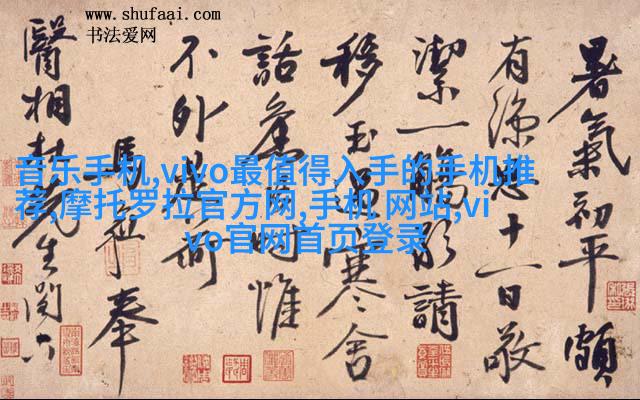 www.shufaai.com
书法爱网
音乐手机,vivo最值得入手的手机推
荐,摩托罗拉官方网,手机 网站,vi
vo官网首页登录
暑氣初平頗
有涼思十一日敬
潔一觴請
移玉寒舍
話舊惟
不外是荷
奉
醫相先生閣下